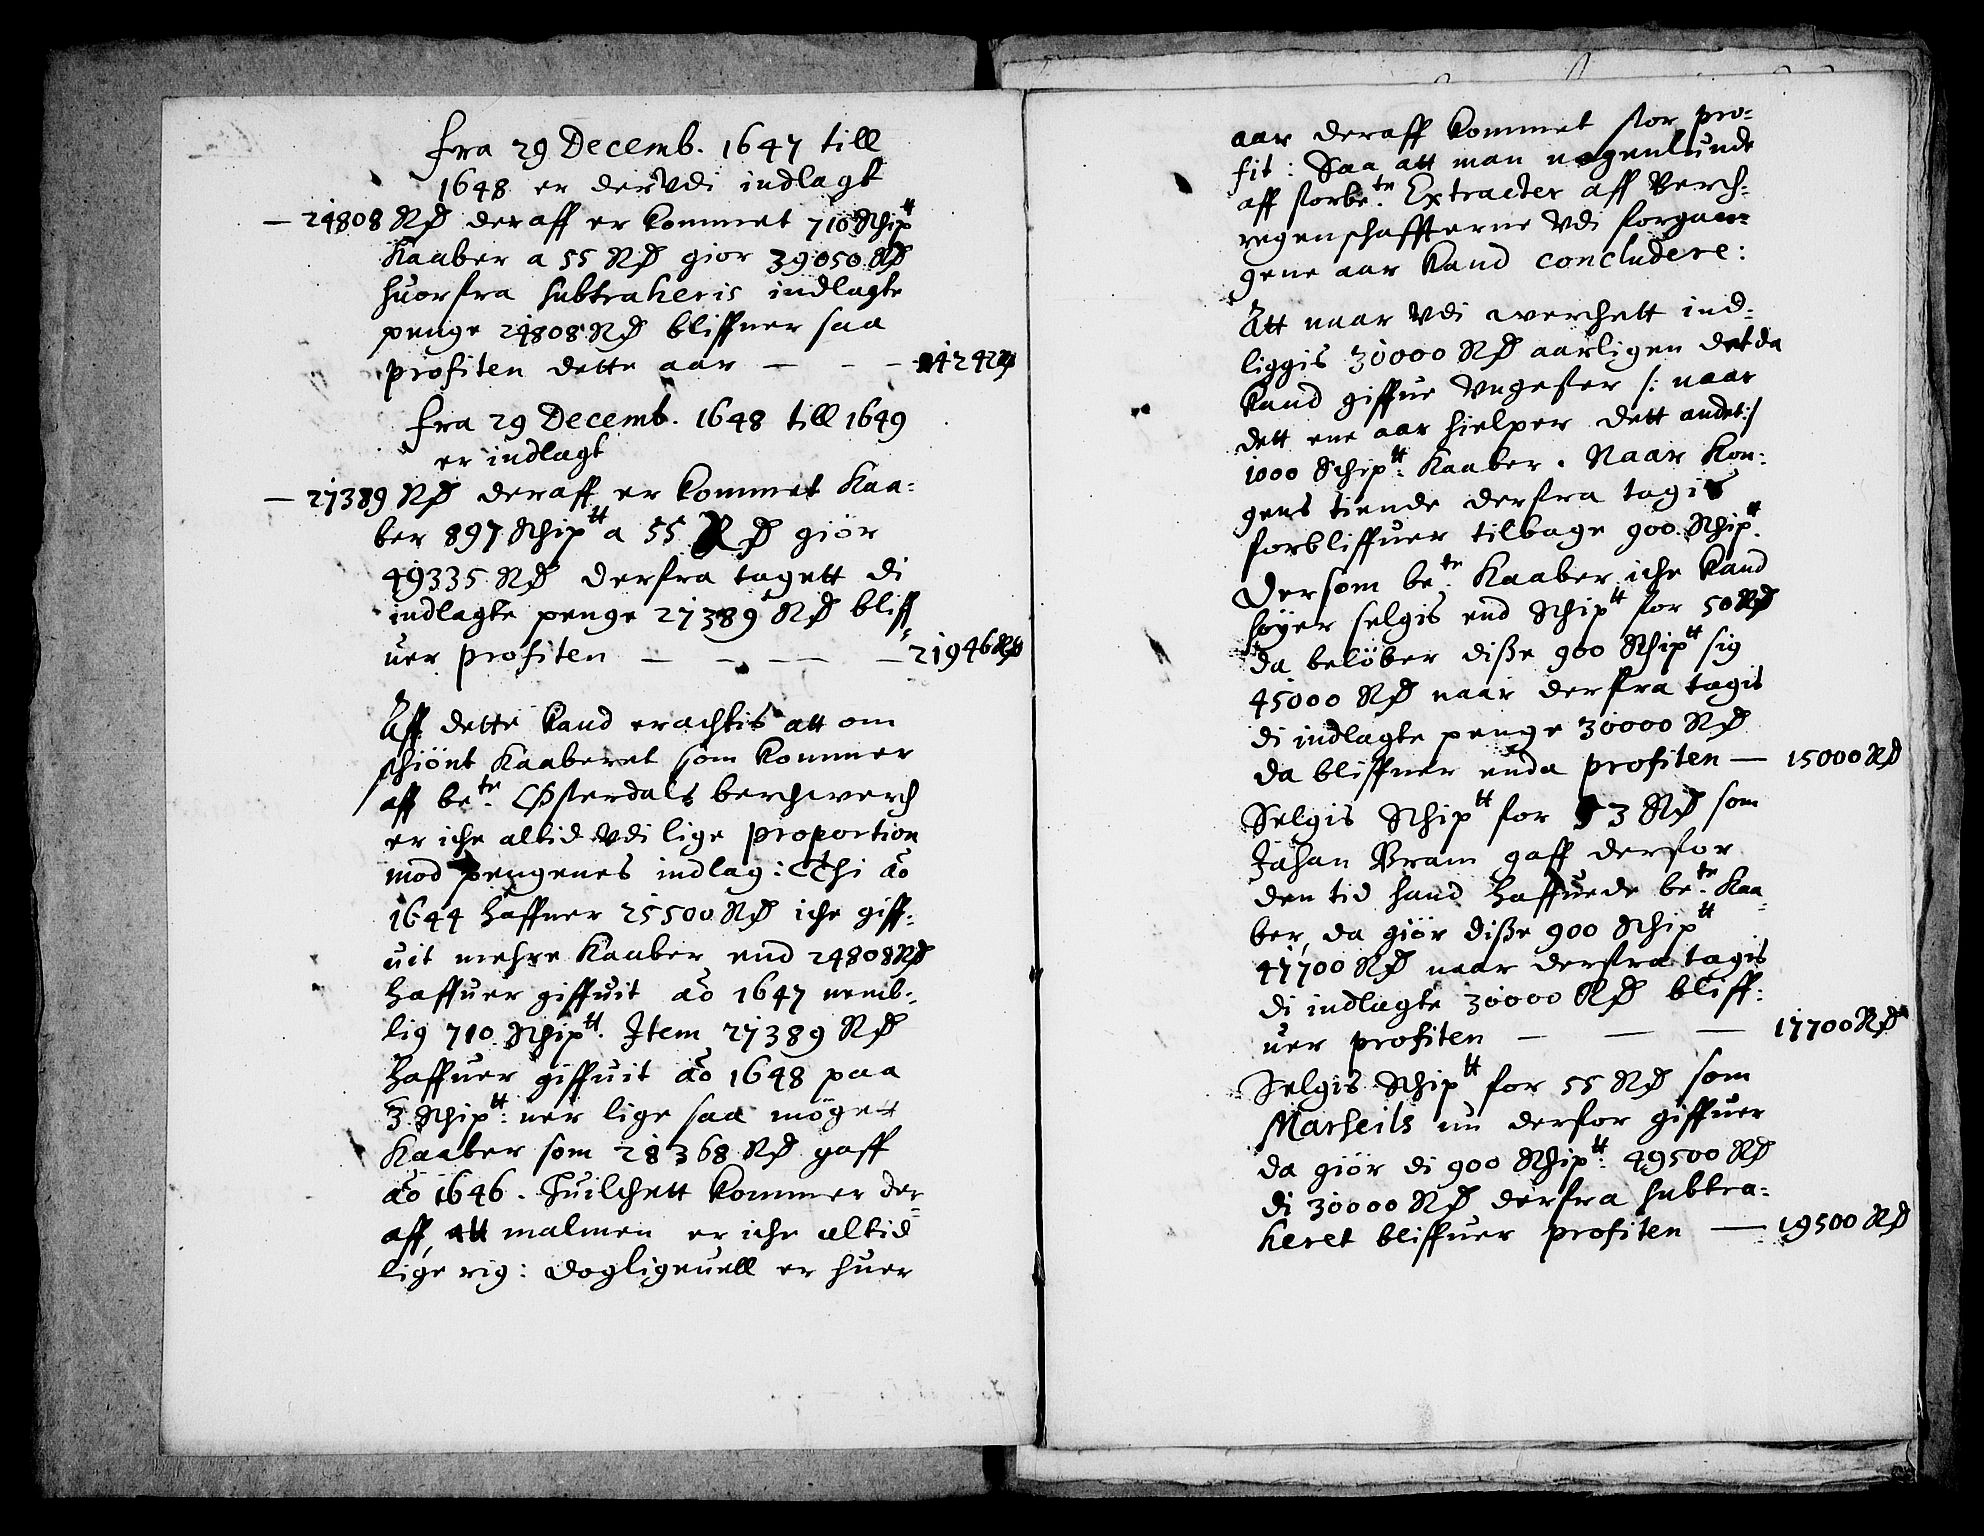 fra 29 Decemb. 1647 till
1648 er der Vdi indlagt
— 24808 RD deraff er kommet 710 Schip tt
Kaaber a 55 RD giör 39050 RD
huorfra subtraheris indlagte
penge 24808 RD bliffuer saa
profiten dette aar — - - 14242
fra 29 Decemb. 1648 till 1649
er indlagt
— 27389 RD deraff er kommet Kaa:
ber 897 Schip tt a 55 RD giör
49335 RD derfra tagett di
indlagte penge 27389 RD bliff
uer profiten — - — — 21946 RD
Aff dette kand erachtis att om
schiönt Kaaberet som kommer
aff be.te Østerdals berchwerch
er iche altid Vdi lige proportion
mod pengenes indlag: Thi ao
1644 haffuer 25500 RD iche giff:
uit mehre Kaaber end 24808 RD
haffuer giffuit ao 1647 nemb:
lig 710 Schip tt. Item 27389 RD
haffuer giffuit ao 1648 paa
3 Schip tt: ner lige saa möget
Kaaber som 28368 RD gaff
ao 1646. Huilchett kommer der
aff, att malmen er iche altid
lige rig: dogligeuell er huer
aar deraff kommet stor pro-
fit: Saa att man nogenlunde
aff forbe.te Extracter aff Verch:
regenschaffterne Vdi forgan:
gene aar kand concludere:
Att naar Vdi werchett ind:
liggis 30000 RD aarligen det da
kand giffue Vngefer /: naar
dett ene aar hielper dett andet:/
1000 Schip tt: Kaaber. Naar Kon:
gens tiende derfra tagis
forbliffuer tilbage 900 Schip tt.
Dersom be.te Kaaber iche kand
höyer selgis end Schip tt for 50 RD
da belöber disse 900 Schip tt sig
45000 RD naar derfra tagis
di indlagte penge 30000 RD
da bliffuer enda profiten — 15000 RD
Selgis Schip tt for 53 RD som
Johan Bram gaff derfor
den tid hand haffuede be.te Kaa
ber, da giör disse 900 Schip tt
47700 RD naar derfra tagis
di indlagte 30000 RD bliff:
uer profiten — — — 17700 RD
Selgis Schip tt for 55 RD som
Marseils nu derfor giffuer
da giör di 900 Schip tt: 49500 RD
di 30000 RD derfra subtra:
heret bliffuer profiten — 19500 RD